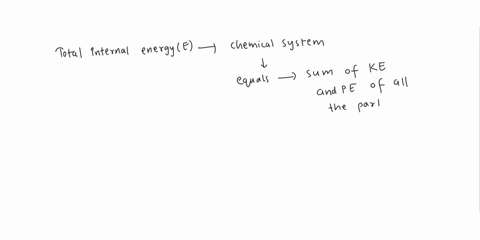 Total internal energy(E) → chemical system
↓
equals → sum of KE
and PE of all
the parl